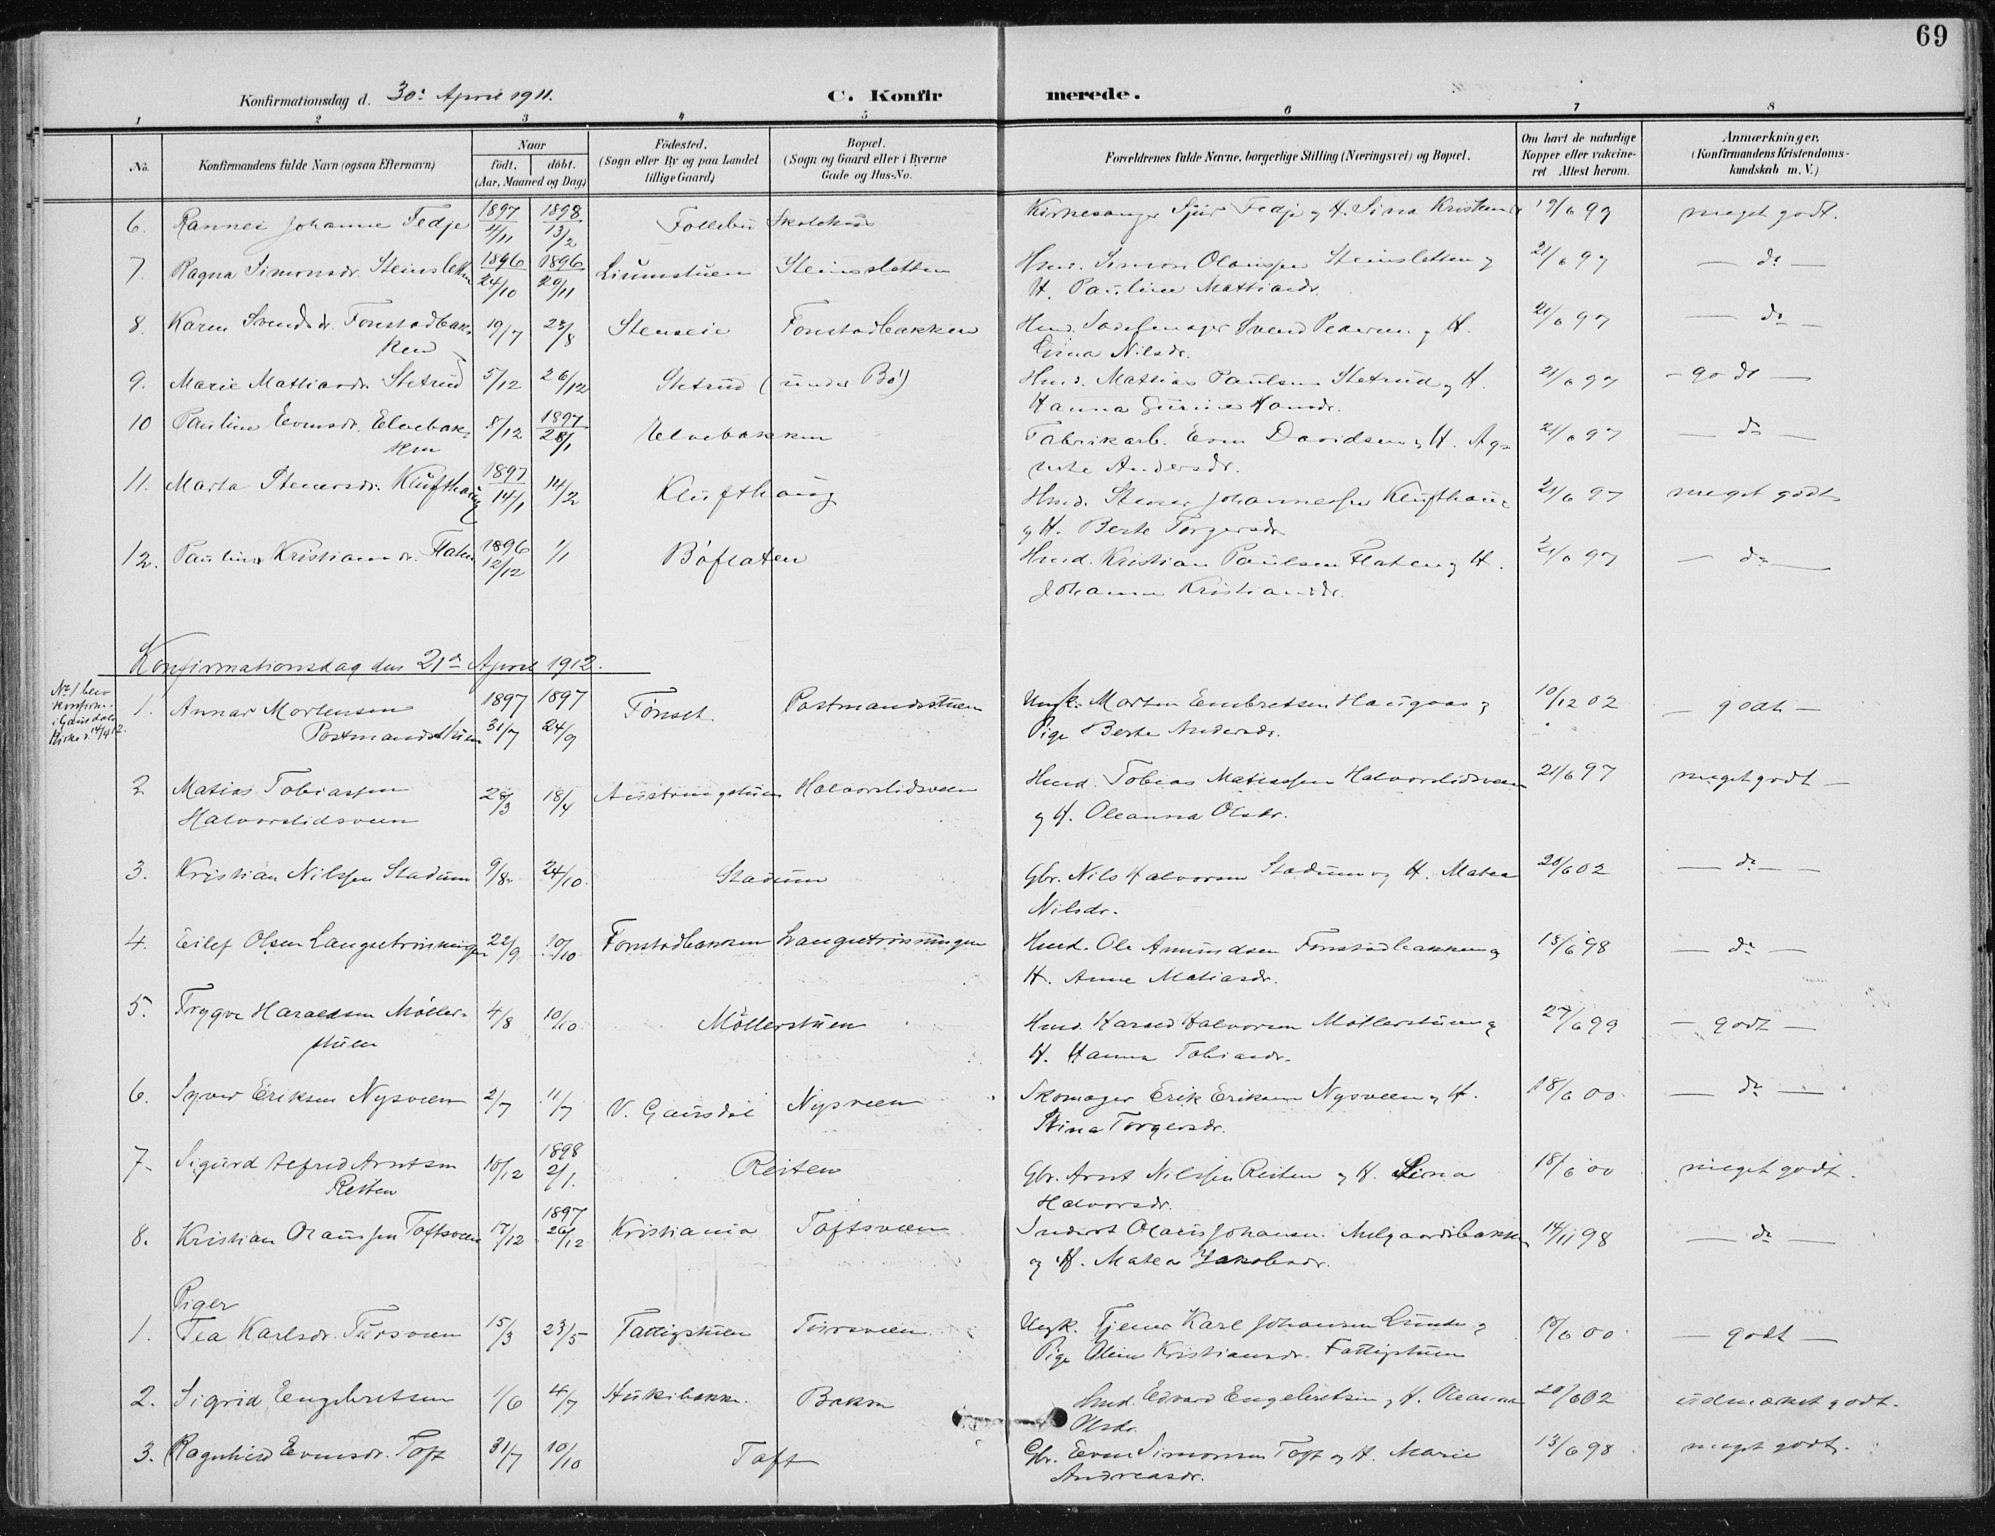 69
Konfirmationsdag d. 30te April 1911.
C. Konfirmerede.
1 2 3 4 5 6 7 8
No. Konfirmandens fulde Navn (ogsaa Efternavn) Naar født. døbt. (Aar, Maaned og Dag) Fødested. (Sogn eller By og paa Landet tillige Gaard) Bopæl. (Sogn og Gaard eller i Byerne Gade og Hus-No. Forældrenes fulde Navne, borgerlige Stilling (Næringsvei) og Bopæl. Om havt de naturlige Kopper eller vakcineret Attest herom. Anmærkninger, (Konfirmandens Kristendomskundskab m. V.)
6. Rannei Johanne Fedje 1897 4/11 1898 13/2 Follebu Skolehus Kirkesanger Sjur Fedje og H. Sina 19/6 99 meget godt.
7. Ragna Simonsdr. 1896 24/10 1896 29/11 Liumstuen Steinsletten Hmd. Simon Olaussen Steinsletten og 21/6 97 — do —
H. Pauline Mathiasdr.
8. Karen Svendsdr. Fonstadbak- 19/7 23/8 Stenseie Fonstadbakken Hmd. Sadelmager Svend Pedersen og H. 21/6 97 — do —
ken Nilsdr.
9. Marie Mathiasdr. Stetrud 5/12 26/12 Stetrud (under Bø) Hmd. Mathias Paulsen Stetrud og H. 21/6 97 — godt —
Hanna Gurine Hansdr.
10 Pauline Evensdr. Elvebak- 8/12 1897 28/1 Elvebakken Fabrikarb. Even Davidsen og H. Ag- 21/6 97 — do —
ken nethe Andersdr.
11. Marta Stenersdr. Klufthaug 1897 14/1 14/2 Klufthaug Hmd. Stener Johannessen Klufthaug 21/6 97 meget godt
og H. Berte Torgersdr.
12. Pauline Kristiansdr. Flaten 1896 12/12 1/1 Bøflaten Hmd. Kristian Paulsen Flaten og H. 21/6 97 — do —
Johanne Kristiansdr.
Konfirmationsdag den 21de April 1912.
No 1 blev
konfirm.
i Gausdals
Kirke d. 14/4 12.
1. Annar Mortensen 1897 31/7 1897 24/9 Tønset. Postmandsstuen Ungk. Morten Embretsen Haugaas og 10/12 02 — godt —
Postmandsstuen Pige Berte Andersdr.
2 Matias Tobiassen 28/3 18/4 Austringstuen Halvorslidsveen Hmd. Tobias Matiassen Halvorslidsveen 21/6 97 meget godt —
Halvorslidsveen og H. Oleanna Olsdr.
3. Kristian Nilssen Stadum 9/8 24/10 Stadum Gbr. Nils Halvorsen Stadum og H. Matea 20/6 02 — do —
Nilsdr.
4. Eilef Olsen Langsetrønningen 22/9 10/10 Fonstadbakken Langsetrønningen Hmd. Ole Amundsen Fonstadbakken og 13/6 98 — do —
H. Anne Matiasdr.
5. Trygve Haraldsen Møller- 4/8 10/10 Møllerstuen Hmd. Harald Halvorsen Møllerstuen og 27/6 99 — godt —
stuen H. Hanna Tobiasdr.
6. Syver Eriksen Nysveen 2/7 11/7 V. Gausdal Nysveen Skomager Erik Eriksen Nysveen og H. 18/6 00 — do —
Stina Torgersdr.
7. Sigurd Alfred Arntsen 10/12 1898 2/1. Reiten Gbr. Arnt Nilssen Reiten og H. Lina 18/6 00 meget godt.
Reiten Halvorsdr.
8. Kristian Olaussen Toftsveen 17/12 1897 26/12 Kristiania Toftsveen Inderst Olaus Johansen Melgaardsbakken 14/11 98 — do —
og H. Matea Jakobsdr.
Piger
1. Tea Karlsdr. Tursveen 15/3 23/5 Fattigstuen Tursveen Ungk. Tjener Karl Johansen Lunde og 18/6 00 — godt —
Pige Oline Kristiansdr. Fattigstuen
2. Sigrid Engebretsen 1/6 4/7 Hukibakken. Bakken Hmd. Edvard Engebretsen og H. Oleanna 20/6 02 udmærket godt.
Olsdr.
3. Ragnhild Evensdr. Toft 31/7 10/10 Toft Gbr. Even Simonsen Toft og H. Marie 13/6 98 meget godt.
Andreasdr.